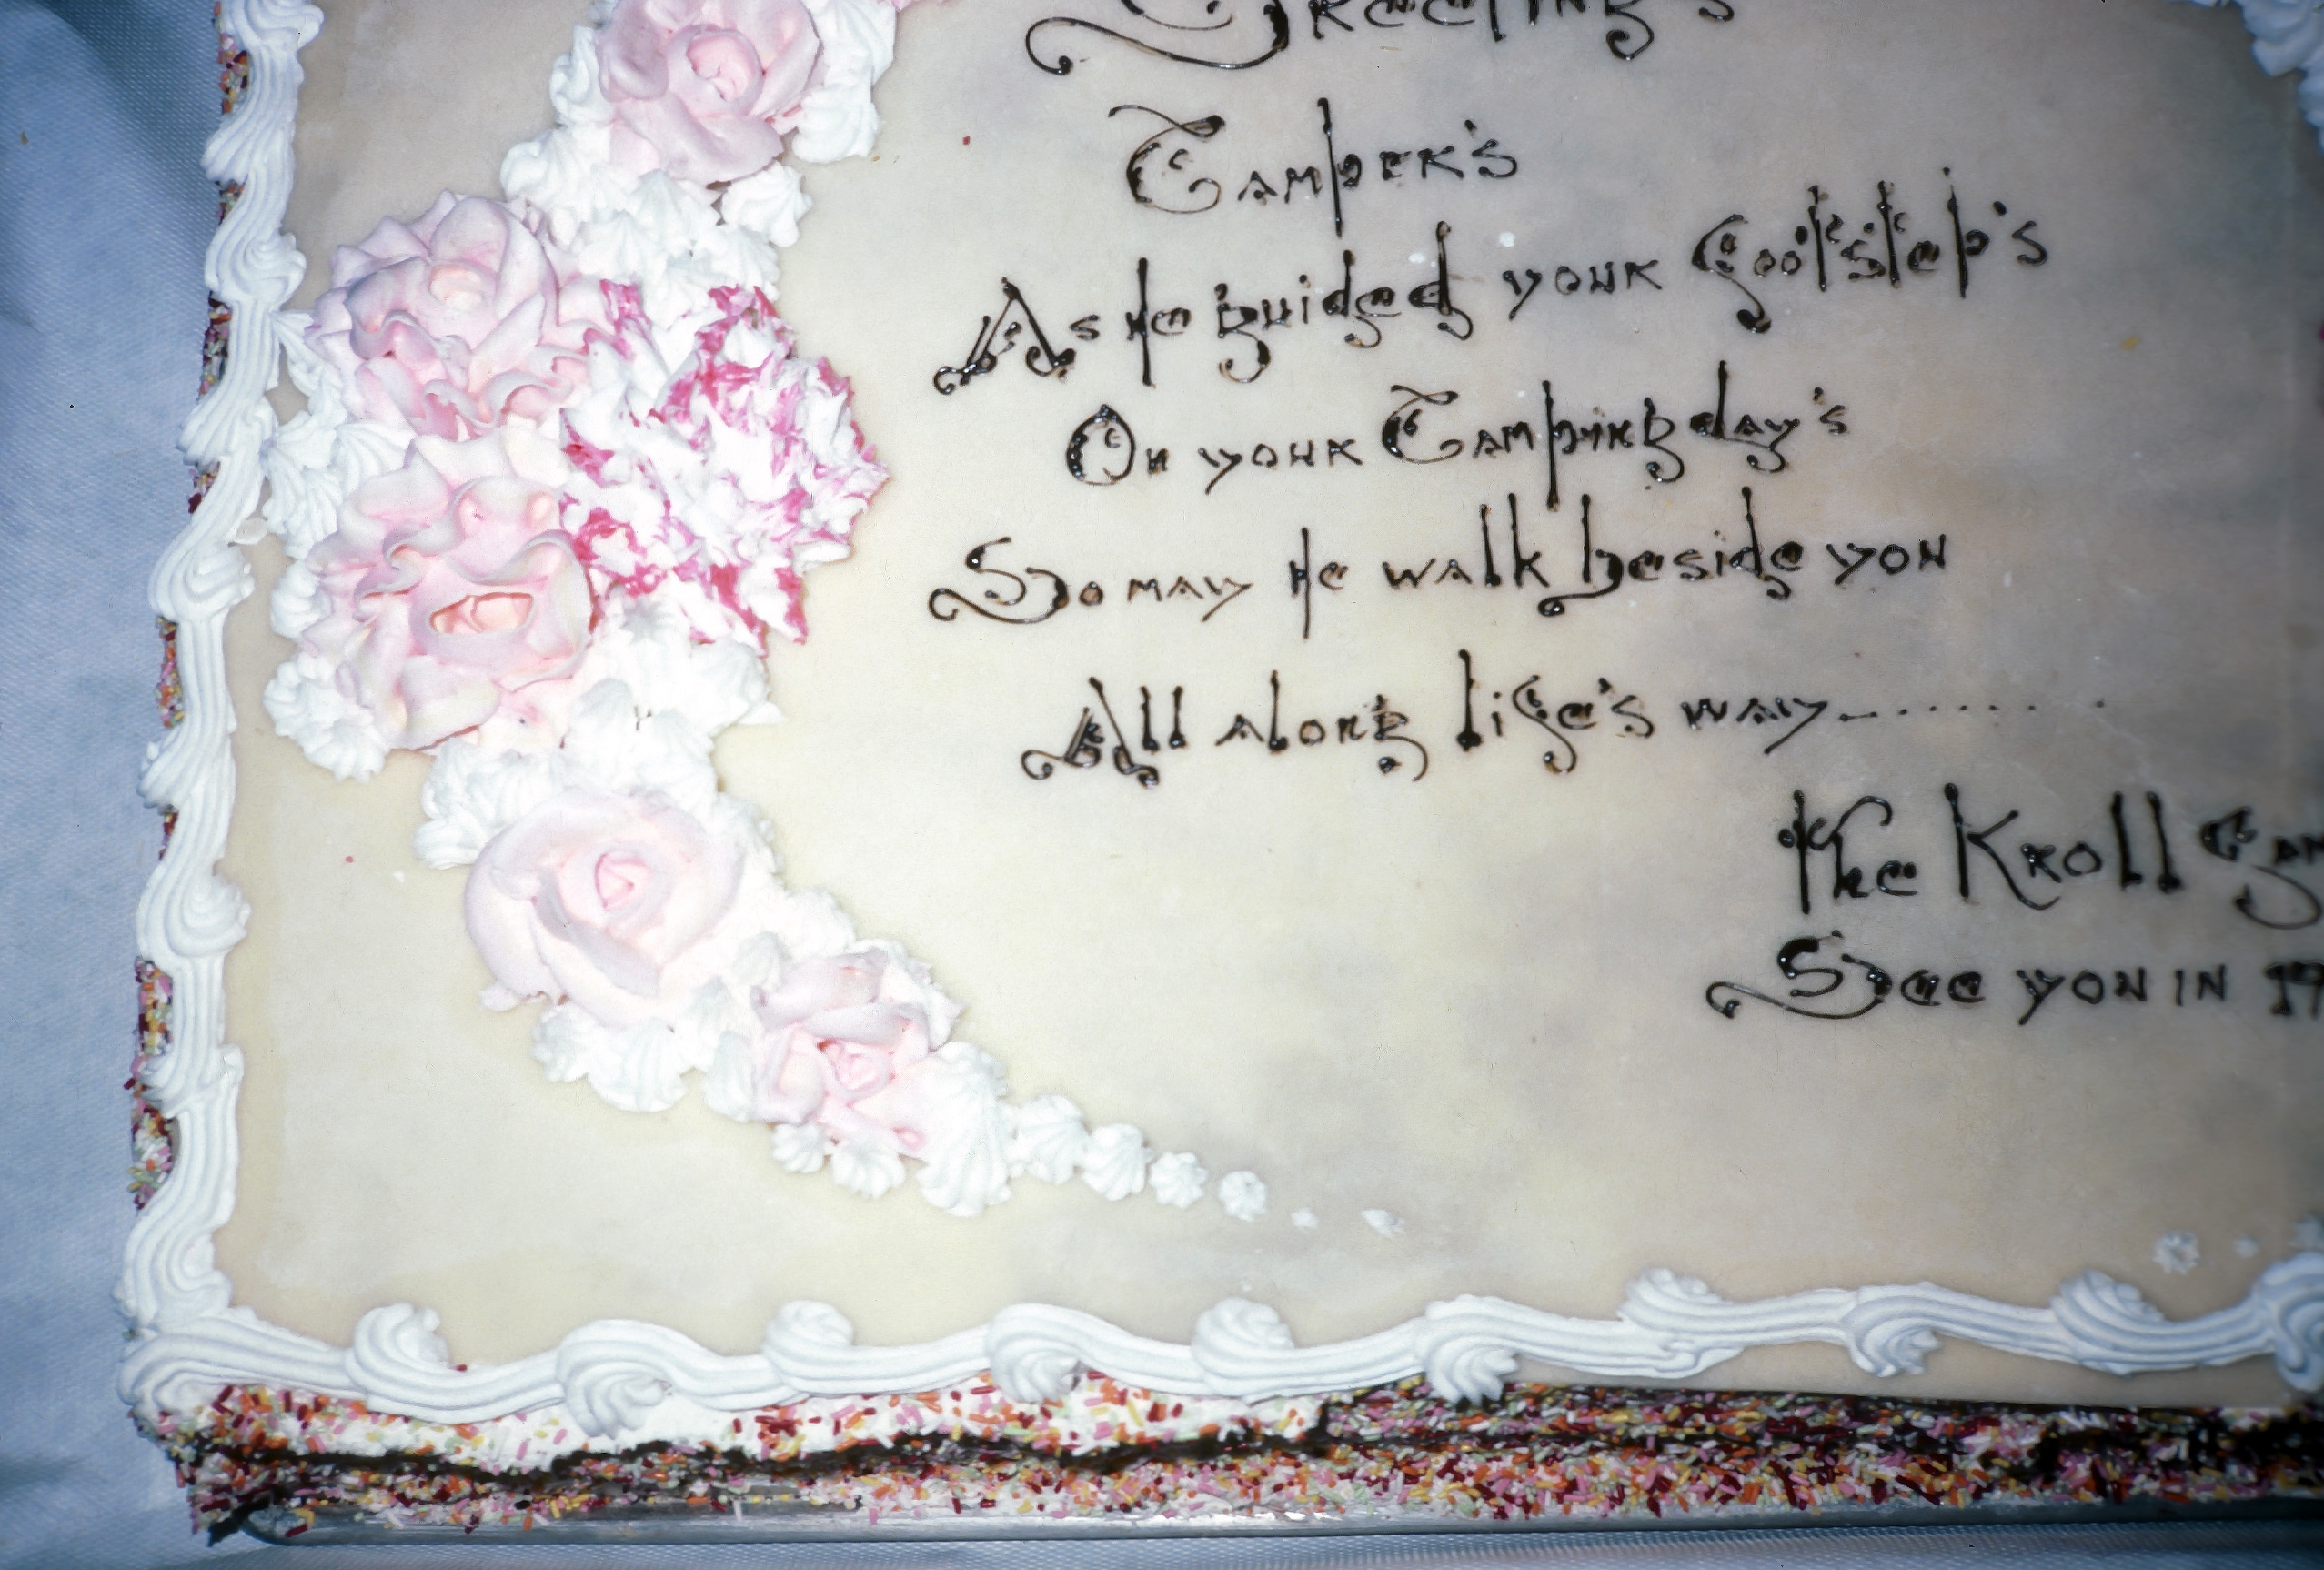 Greeting's
Camper's
As He guided your Footstep's
On your Camping day's
So may He walk beside you
All along life's way.........
The Kroll
See you in